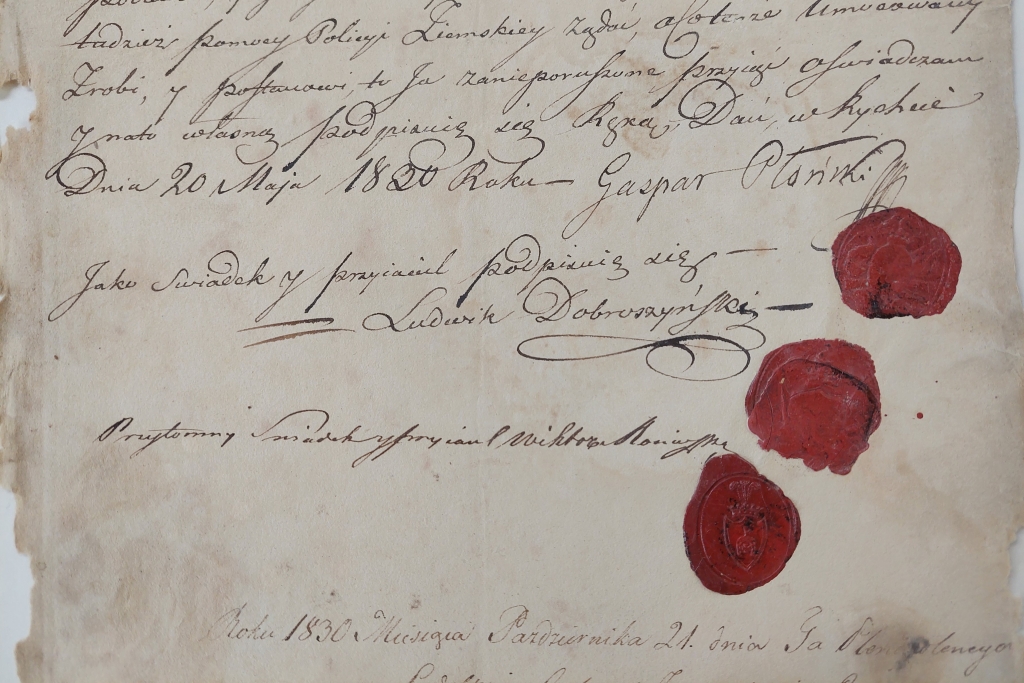 tudzież pomocy Policyi Ziemskiey żądać, a co tenże Umocowany
Zrobi, y postanowi, to Ja zanieporuszone przyiąć oświadczam
y na to własną podpisuię się Ręką, Dań, w Rychcie
Dnia 20 Maja 1830 Roku — Gaspar Płoński
Jako Swiadek y przyiaciel podpisuię się —
Ludwik Dobroszyński —
Przytomny Swiadek y przyiaciel Wiktor
Roku 1830 Miesiąca Pazdziernika 21. dnia Ja